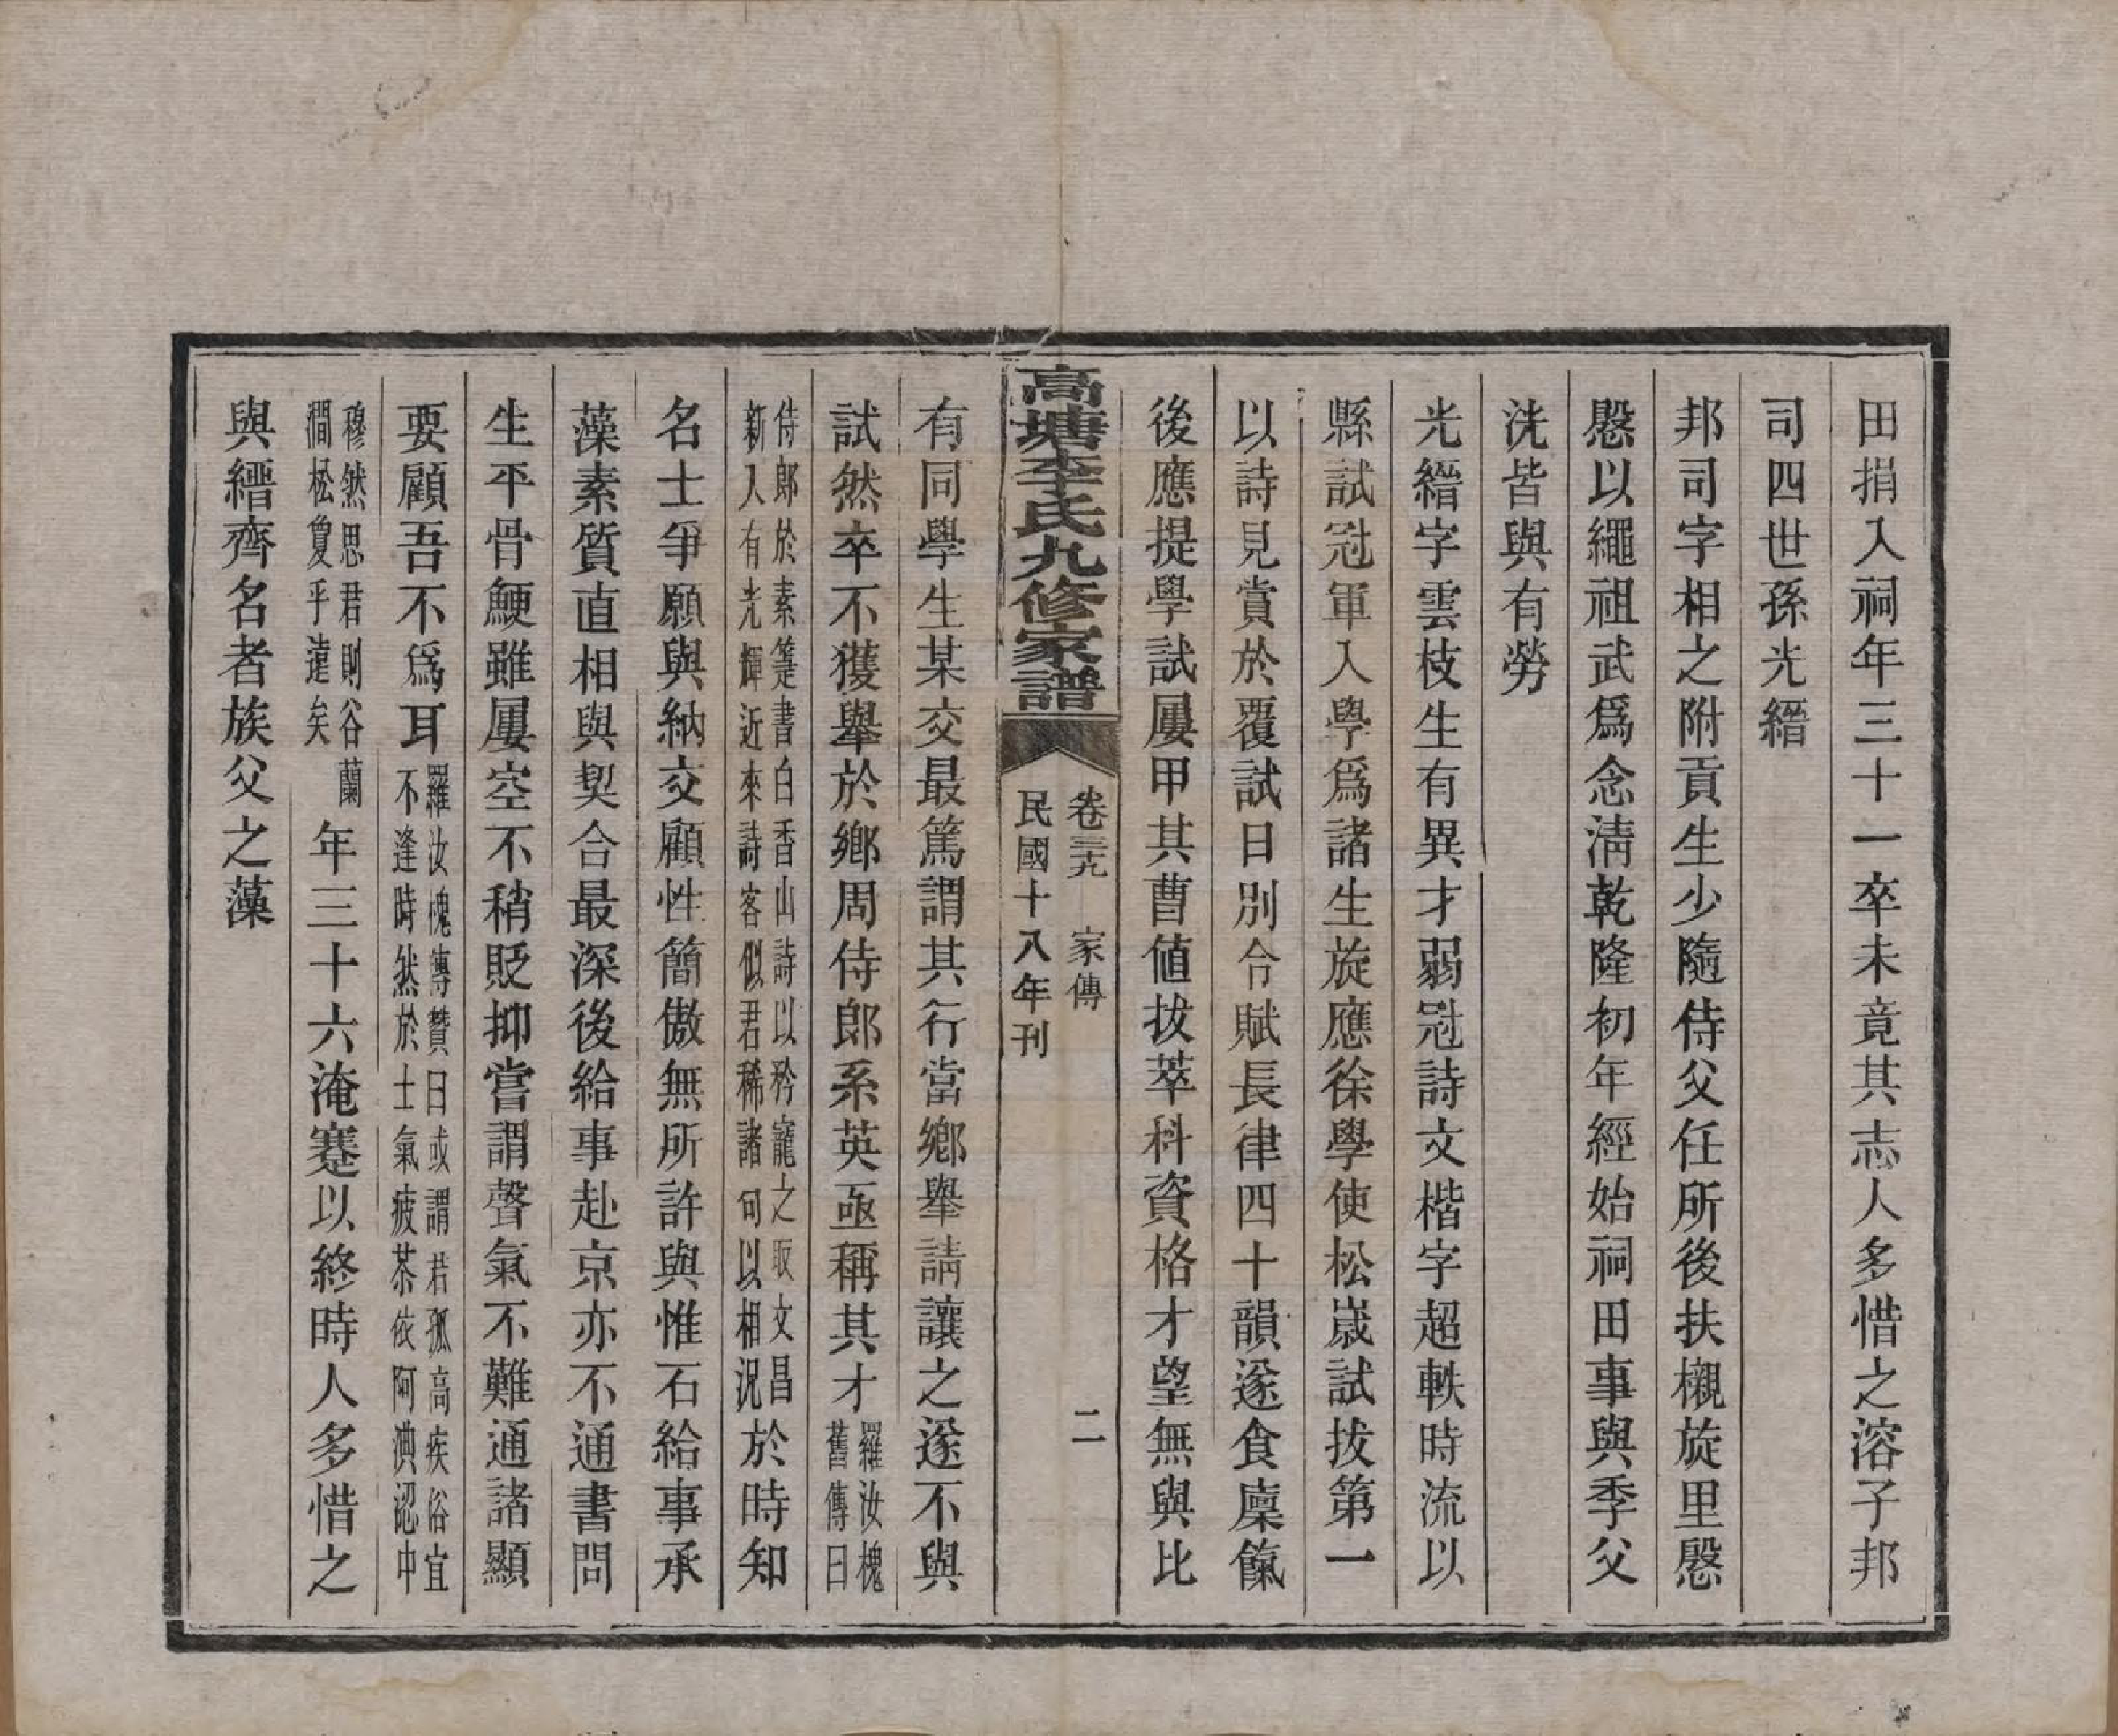 田捐入祠年三十一卒未竟其志人多惜之溶子邦
司四世孫光縉
邦司字相之附貢生少隨侍父任所後扶櫬旋里慇
慇以繩祖武爲念淸乾隆初年經始祠田事與季父
洸皆與有勞
光縉字雲枝生有異才弱冠詩文楷字超軼時流以
縣試冠軍入學爲諸生旋應徐學使松嵗試拔第一
以詩見賞於覆試日別令賦長律四十韻遂食廩餼
後應提學試屢甲其曹値拔萃科資格才望無與比
高塘李氏九修家譜
卷三九 家傳
二
民國十八年刊
有同學生某交最篤謂其行當鄉舉請讓之遂不與
試然卒不獲舉於鄉周侍郎系英亟稱其才羅汝槐舊傳曰
侍郎於素箑書白香山詩以矜寵之取文昌新入有光輝近來詩客似君稀諸句以相況於時知
名士爭願與納交顧性簡傲無所許與惟石給事承
藻素質直相與契合最深後給事赴京亦不通書問
生平骨鯁雖屢空不稍貶抑嘗謂聲氣不難通諸顯
要顧吾不爲耳羅汝槐傳贊曰或謂君孤高疾俗宜不逢時然於士氣疲苶依阿淟涊中
穆然思君則谷蘭澗松敻乎遠矣年三十六淹蹇以終時人多惜之
與縉齊名者族父之藻